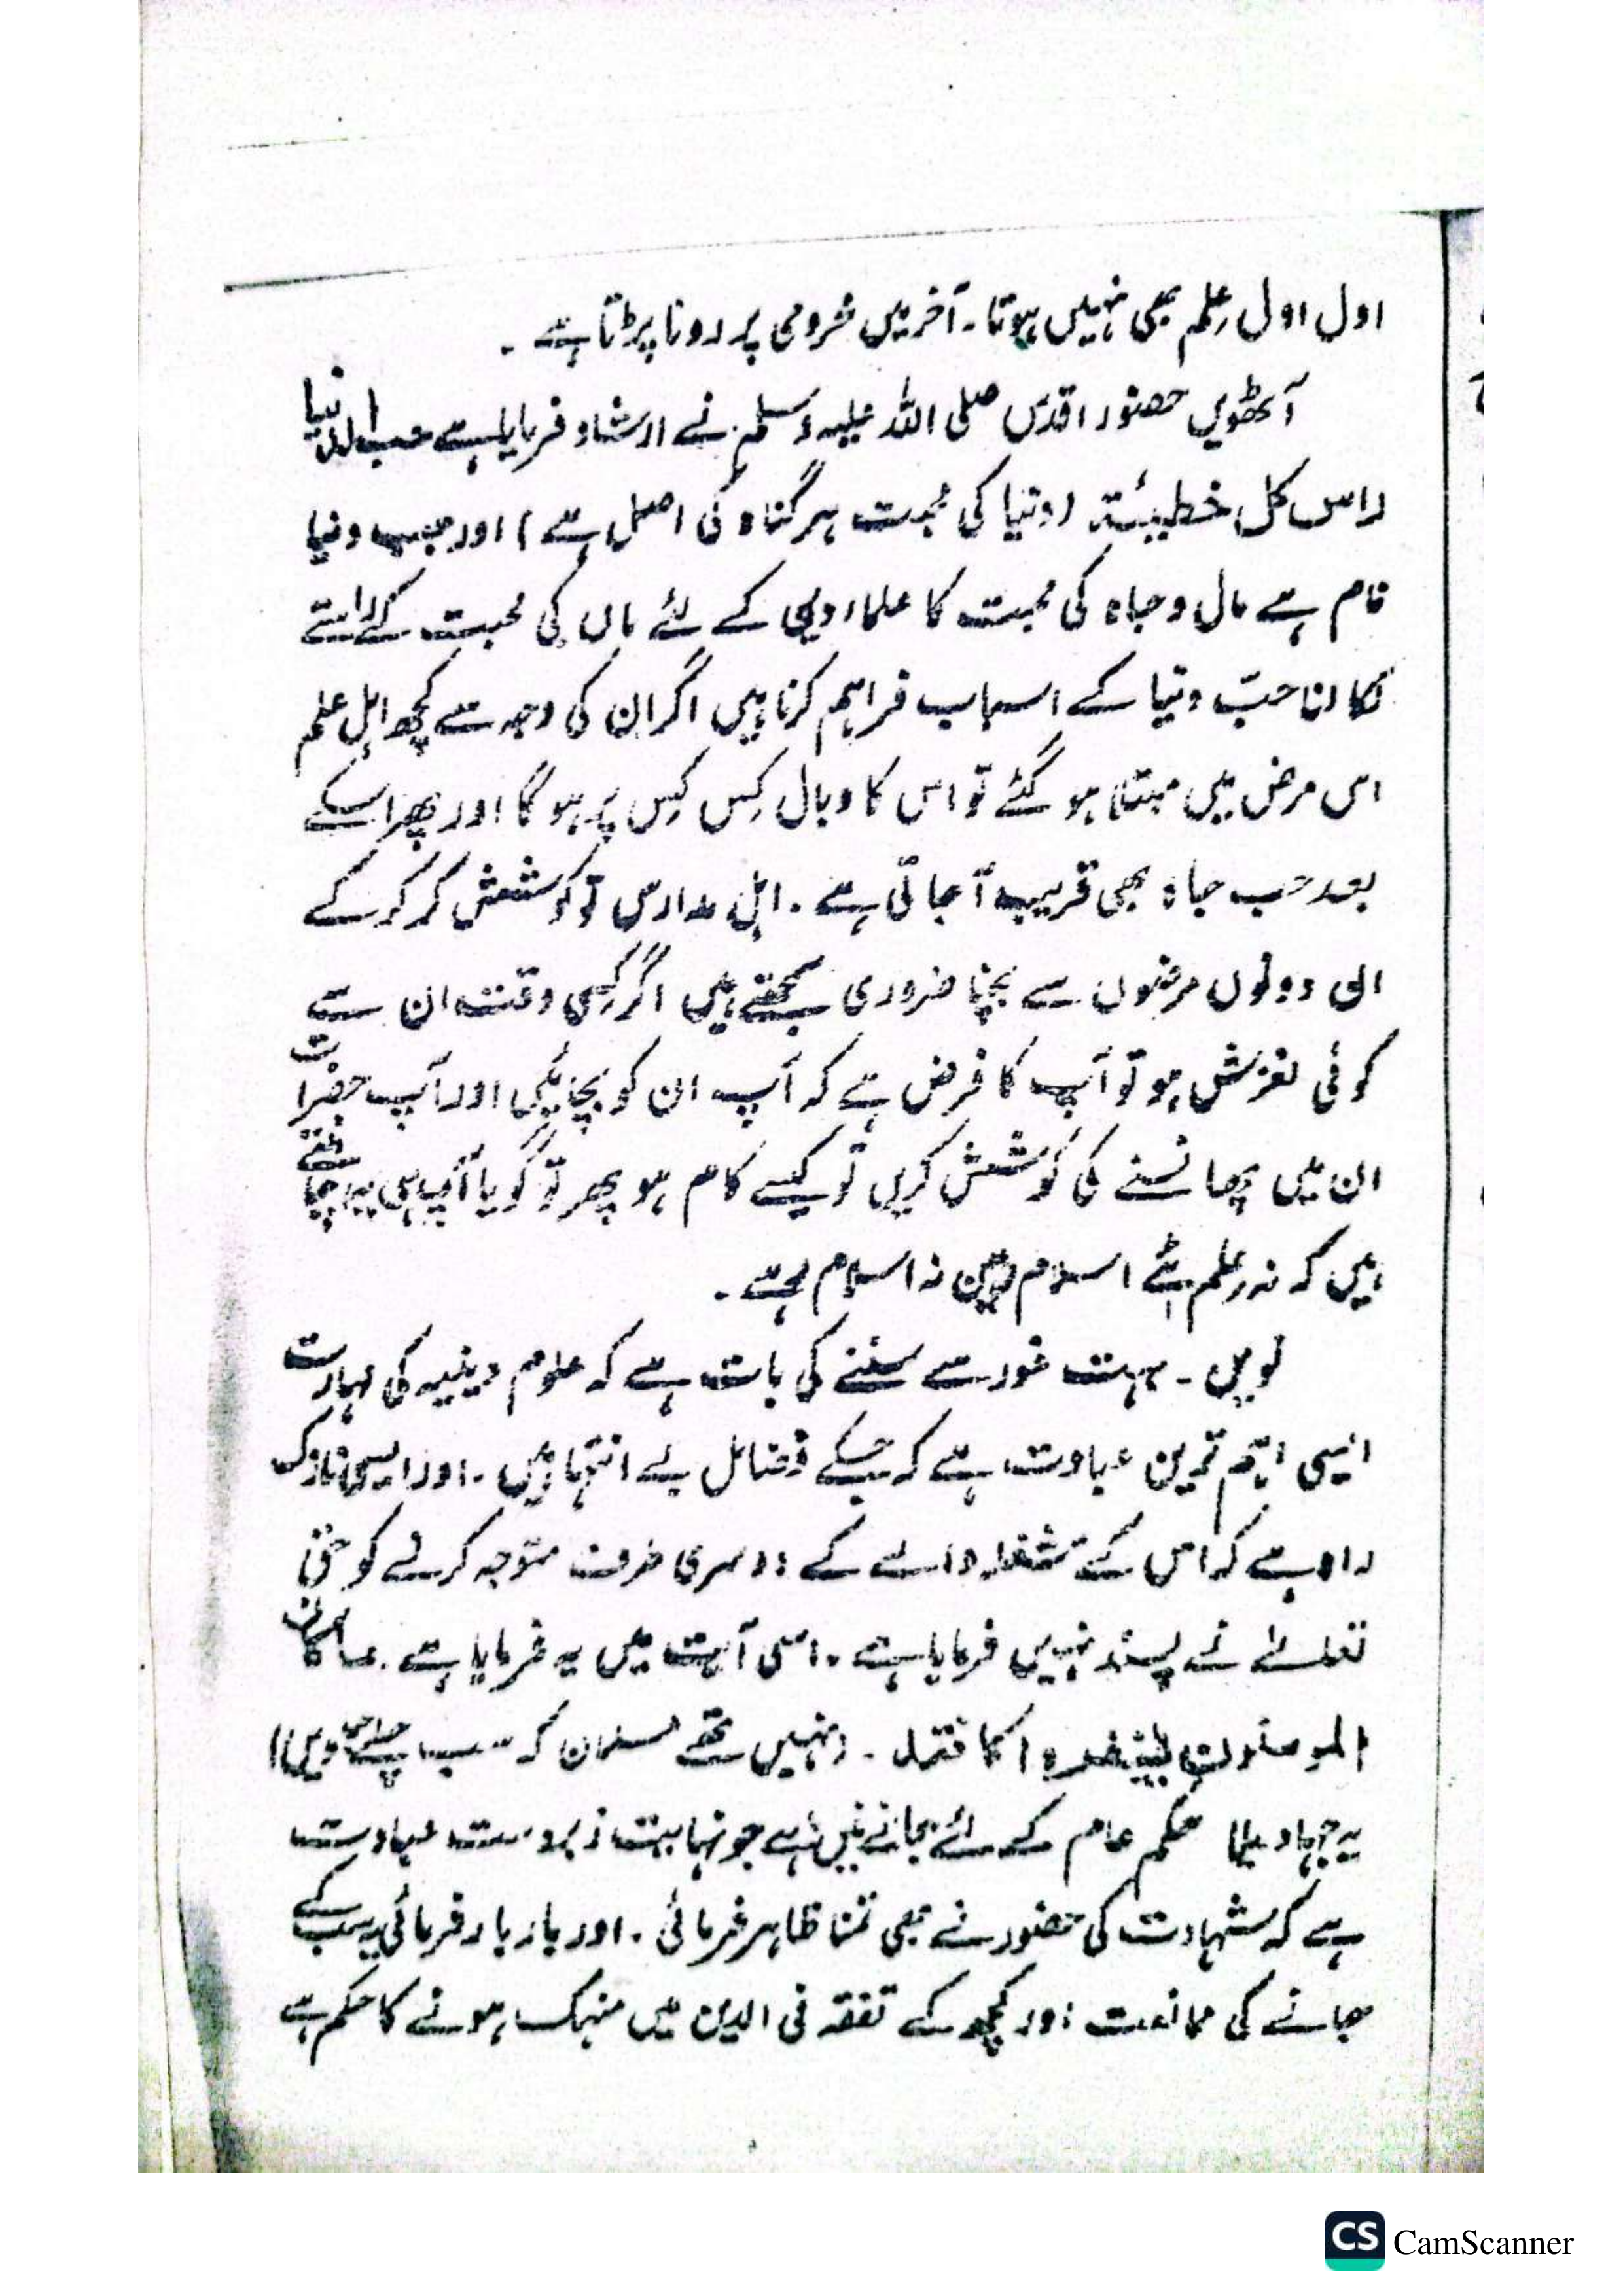 اول اول علم بھی نہیں ہوتا۔ آخر میں محرومی پر رونا پڑتا ہے۔
آٹھویں حضور اقدس صلی اللہ علیہ وسلم نے ارشاد فرمایا ہے حب الدنیا
راس کل خطیئۃ (دنیا کی محبت ہر گناہ کی اصل ہے) اور حب دنیا
نام ہے مال و جاہ کی محبت کا علماء دین کے لئے مال کی محبت کے راستے
نکالنا حبّ دنیا کے اسباب فراہم کرنا ہیں اگر ان کی وجہ سے کچھ اہل علم
اس مرض میں مبتلا ہو گئے تو اس کا وبال کِس کِس پر ہو گا اور پھر اسکے
بعد حب جاہ بھی قریب آ جاتی ہے۔ اہل مدارس تو کوشش کر کر کے
ان دونوں مرضوں سے بچنا ضروری سمجھتے ہیں اگر کسی وقت ان سے
کوئی لغزش ہو تو آپ کا فرض ہے کہ آپ ان کو بچائیں اور آپ حضرات
ان میں پھانسنے کی کوشش کریں تو کیسے کام ہو پھر تو گویا آپ ہی یہ چاہتے
ہیں کہ نہ علم اسلام نہ اسلام
نویں۔ بہت غور سے سننے کی بات ہے کہ علوم دینیہ کی مہارت
ایسی اہم ترین عبادت ہے کہ جسکے فضائل بے انتہا ہیں۔ اور ایسی نازک
راہ ہے کہ اس کے مشغلہ والے کے دوسری طرف متوجہ کرنے کو حق
تعالےٰ نے پسند نہیں فرمایا ہے۔ اسی آیت میں یہ فرمایا ہے۔ ما کان
المومنون لینفروا کافۃ۔ (نہیں تھے مسلمان کہ سب چلے جاویں)
یہ جہاد حکم عام کے لئے جانے میں ہے جو نہایت زبردست عبادت
ہے کہ شہادت کی حضور نے بھی تمنا ظاہر فرمائی۔ اور بار بار فرمائی سب کے
جانے کی ممانعت اور کچھ کے تفقہ فی الدین میں منہمک ہونے کا حکم ہے
CS CamScanner